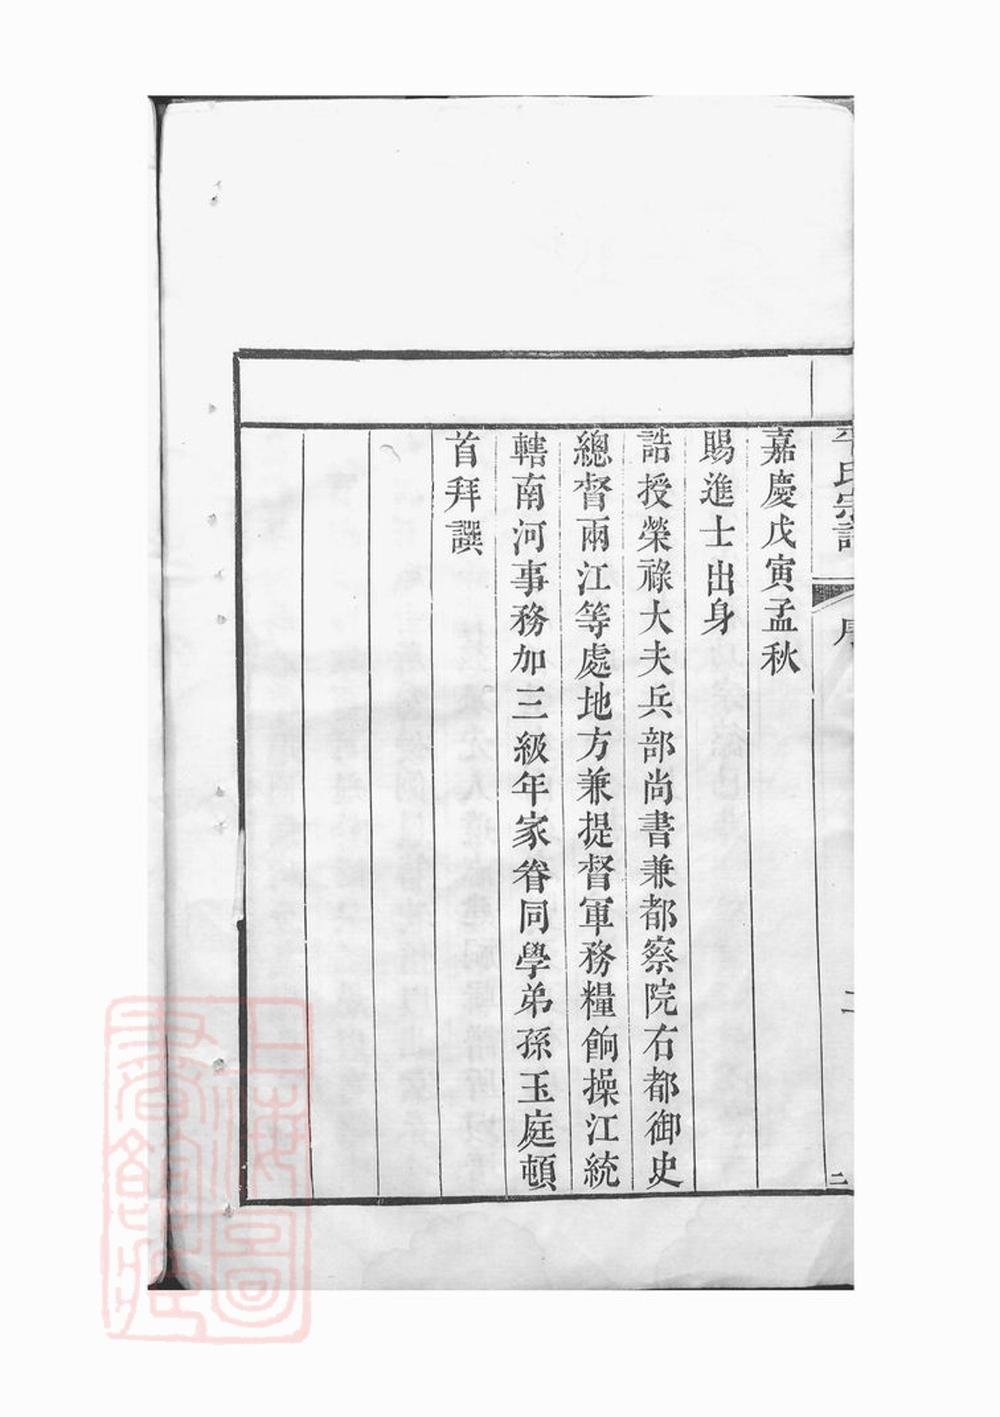 嘉慶戊寅孟秋
賜進士出身
誥授榮祿大夫兵部尚書兼都察院右都御史
總督兩江等處地方兼提督軍務糧餉操江統
轄南河事務加三級年家眷同學弟孫玉庭頓
首拜譔
上海圖
書館藏